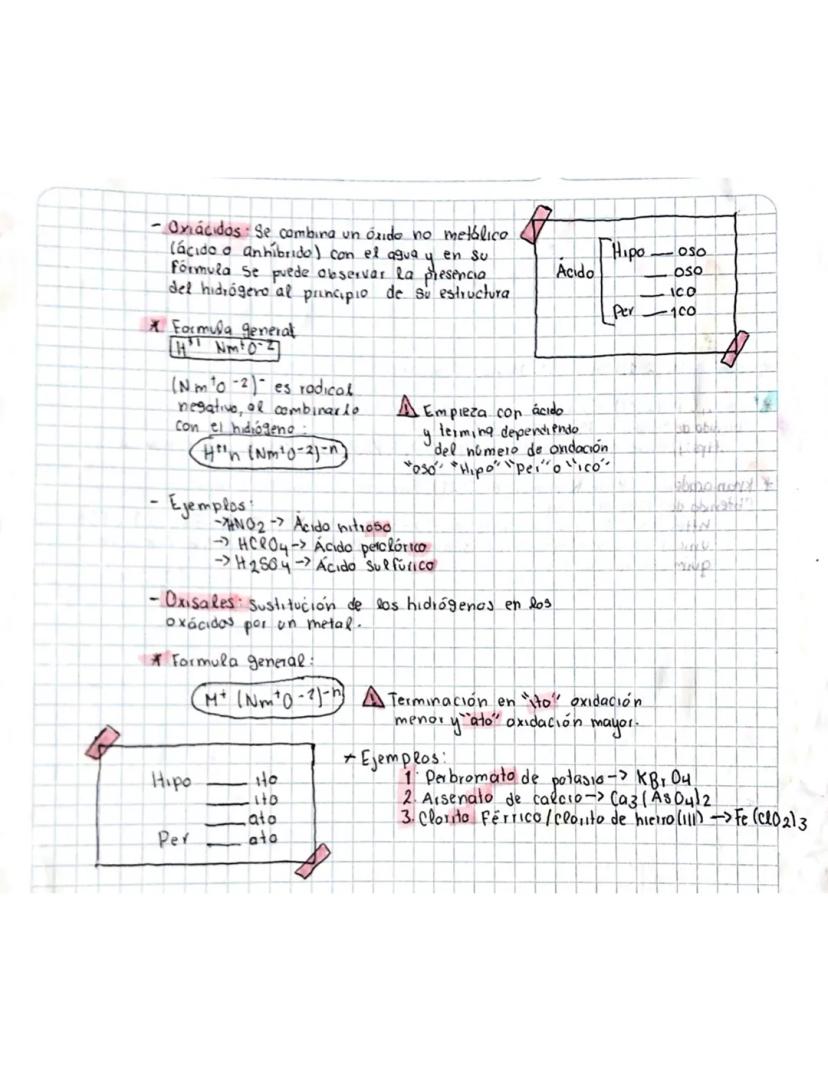 - Oxiácidos: Se combina un óxido no metálico
(ácido o anhíbrido) con el agua y en su
fórmula se puede observar la presencia
del hidrógeno al principio de su estructura
Ácido
Hipo ___ oso
___ oso
___ ico
Per ___ ico
* Formula general
H+1 Nm+O-2
(Nm+O-2)- es radical
negativo, al combinarlo
con el hidrógeno:
H+1n (Nm+O-2)-n
Empieza con ácido
y termina dependiendo
del número de oxidación
"oso" "Hipo" "Per" o "ico".
- Ejemplos:
-> HNO2 -> Ácido nitroso
-> HClO4 -> Ácido perclórico
-> H2SO4 -> Ácido Sulfúrico
- Oxisales: sustitución de los hidrógenos en los
oxácidos por un metal.
* Formula general:
M+ (Nm+O-2)-n
Terminación en "ito" oxidación
menor y "ato" oxidación mayor.
Hipo ___ ito
___ ito
___ ato
Per ___ ato
* Ejemplos:
1. Perbromato de potasio -> KBrO4
2. Arsenato de calcio -> Ca3(AsO4)2
3. Clorito Férrico / clorito de hierro (III) -> Fe(ClO2)3